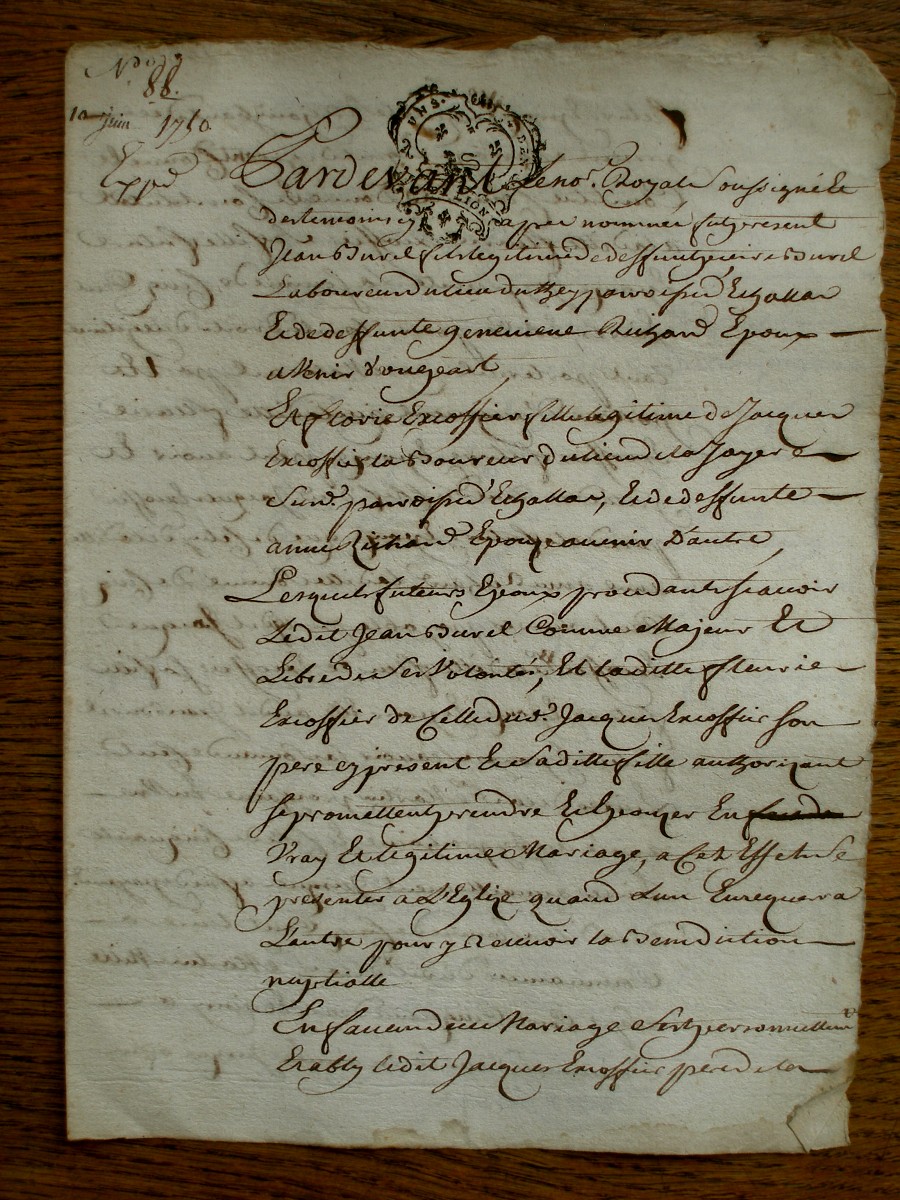 N° 88.
10 juin 1750
Exped
Pardevant Le no.re Royal Soussigné Et
des temoins cy apres nommes fut present
Jean Burel fils legitime de deffunt pierre Burel
Laboureur du lieu du They paroisse d'Echallas
Et de deffunte genevieve Richard Epoux
a Venir d'une part,
Et florie Excoffier fille legitime de Jacques
Excoffier Laboureur du lieu de la
paroisse d'Echallas, Et de deffunte
anne Richard Epouze avenir D'autre,
Lesquels futeurs Epoux procedants scavoir
Ledit Jean Burel Comme Majeur Et
Libre de ses Volontés, Et laditte fleurie
Excoffier de Celle du s.r Jacques Excoffier son
pere cy present Et Saditte fille authorizant
se promettent prendre Et Epouzer En
Vray Et legitime Mariage, a Cet Effet se
presenter a L'Eglize quand L'un Enrequerra
L'autre pour y Recevoir la Benediction
nuptialle
En faveur du Mariage S'est personnellem.t
Etably Ledit Jacques Excoffier pere de la